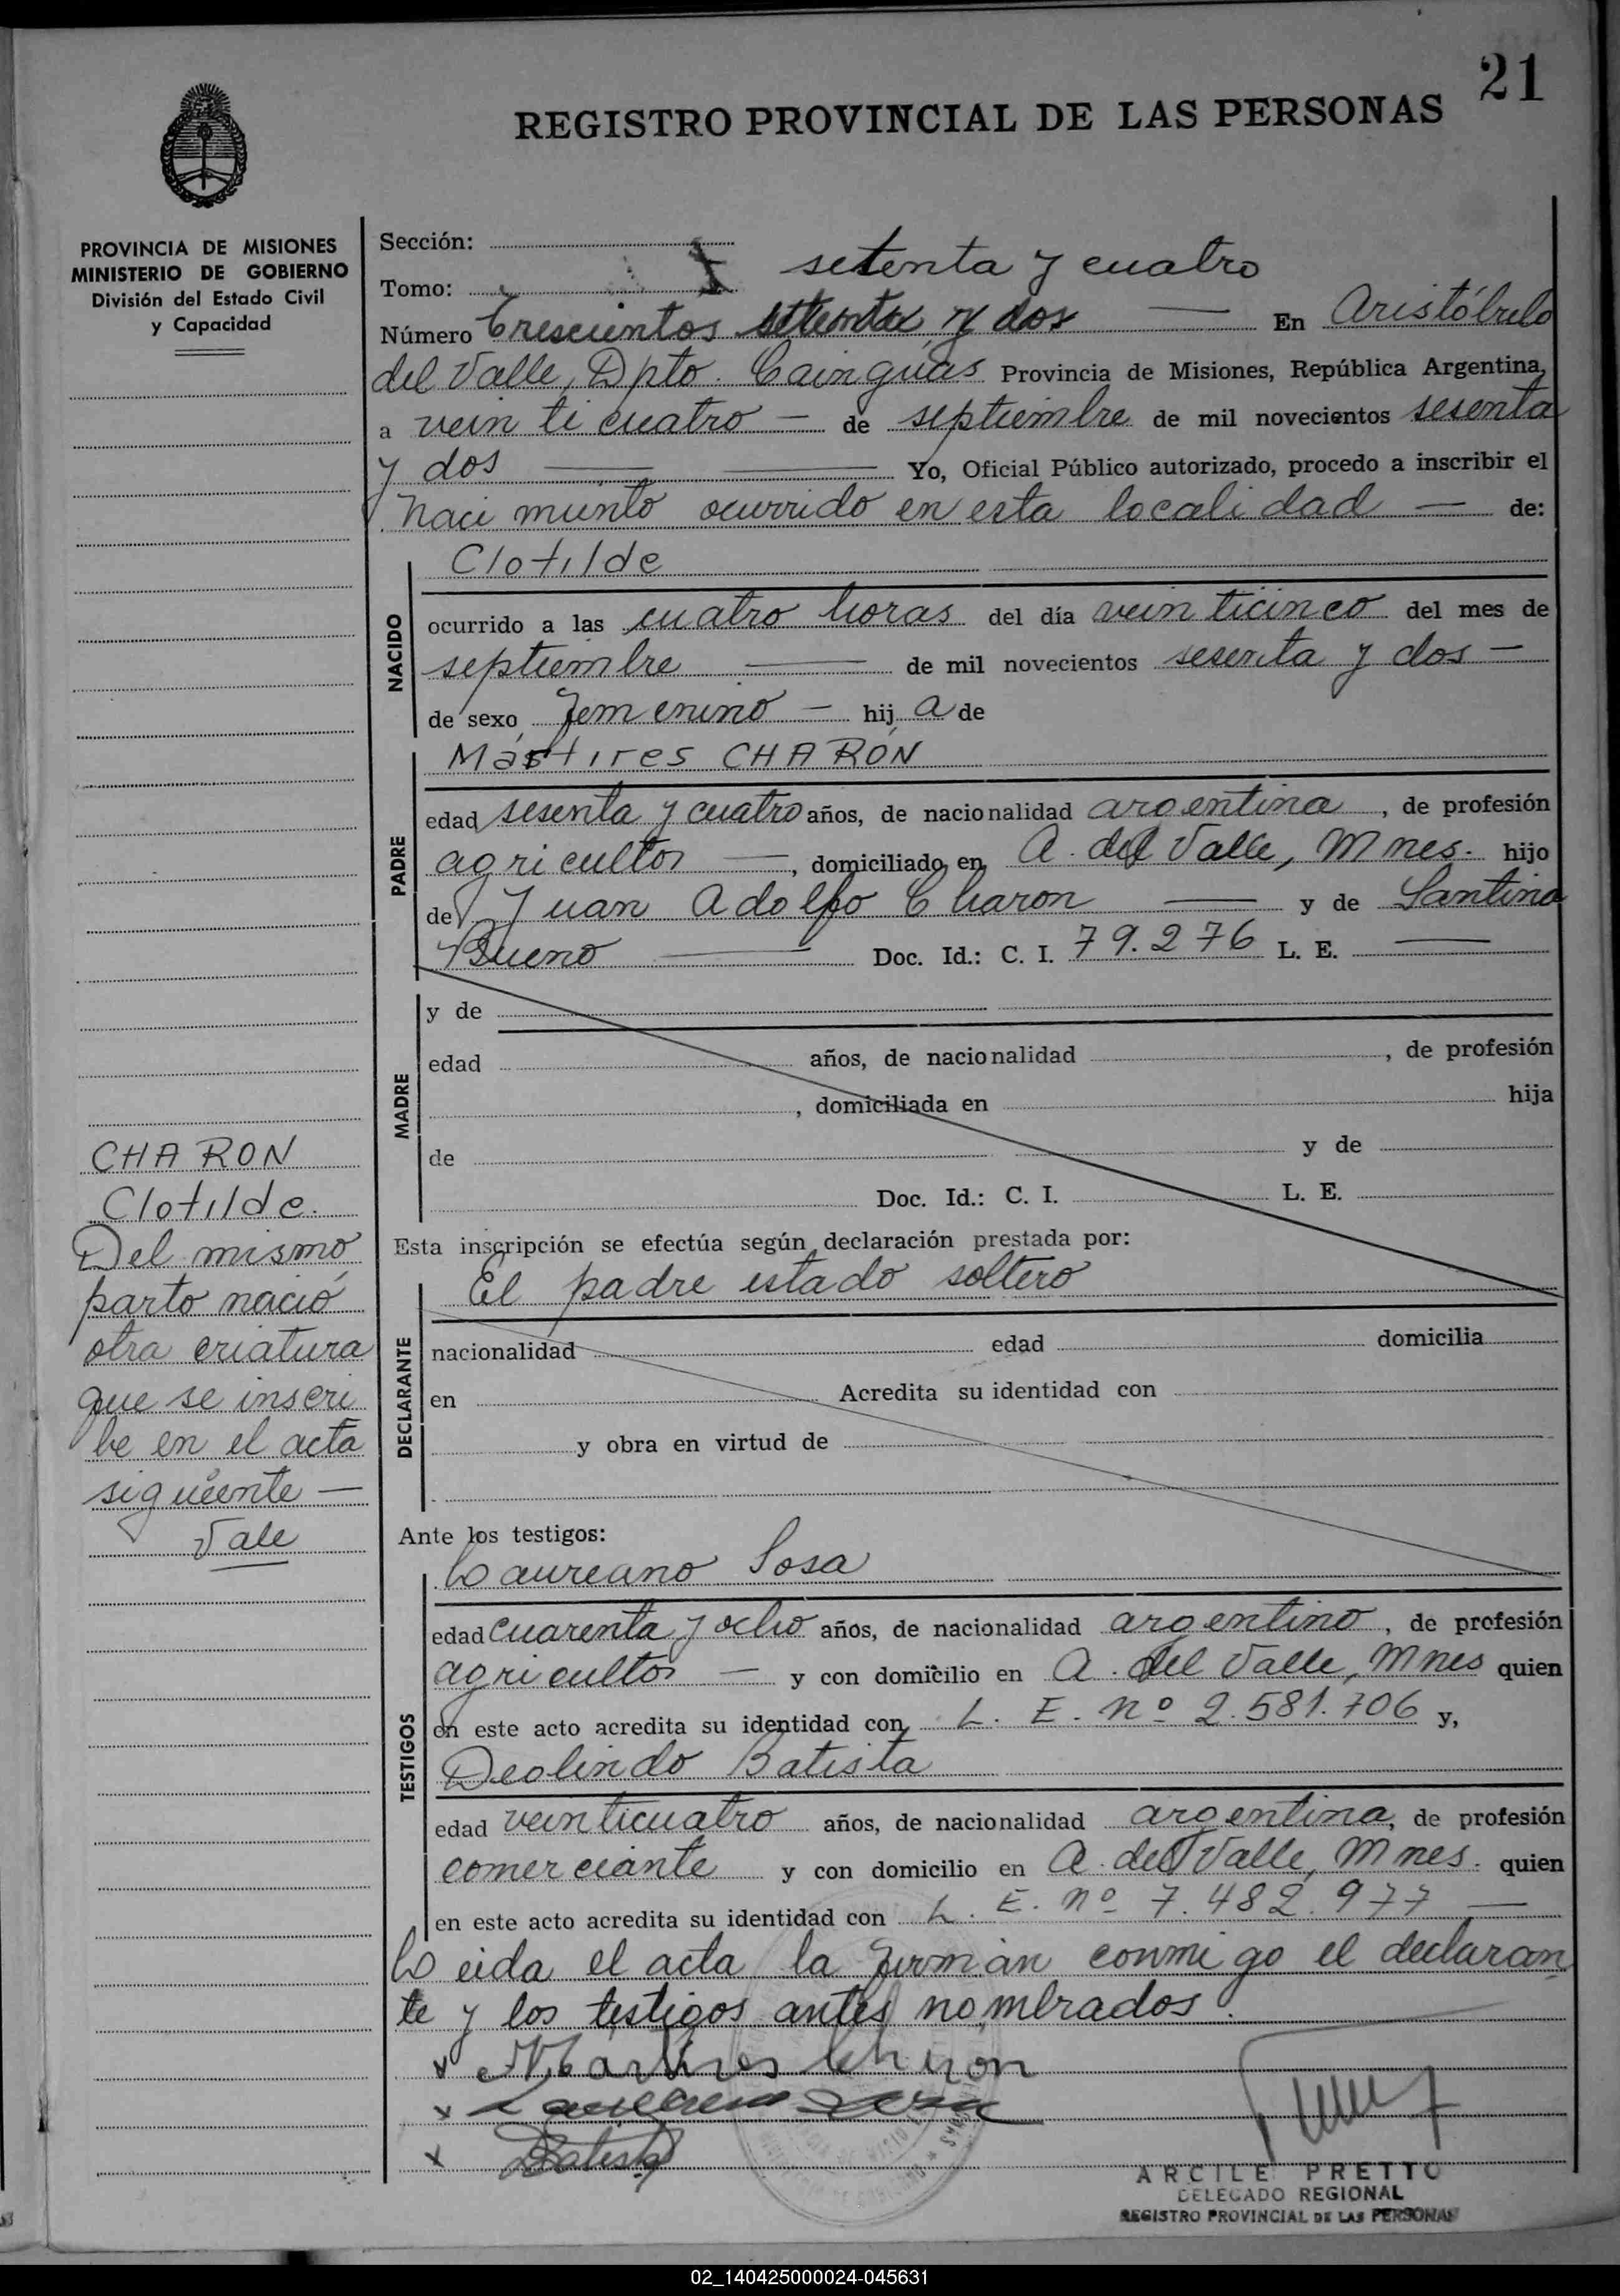 21
REGISTRO PROVINCIAL DE LAS PERSONAS
PROVINCIA DE MISIONES
MINISTERIO DE GOBIERNO
División del Estado Civil
y Capacidad
CHARON
Clotilde.
Del mismo
parto nació
otra criatura
que se inscri
be en el acta
siguiente —
Vale
Sección:
setenta y cuatro
Tomo: I
Número Trescientos setenta y dos — En Aristóbulo
del Valle, Dpto. Cainguás Provincia de Misiones, República Argentina,
a vein ti cuatro — de septiembre de mil novecientos sesenta
y dos — — Yo, Oficial Público autorizado, procedo a inscribir el
naci miento ocurrido en esta localidad — de:
Clotilde
NACIDO
ocurrido a las cuatro horas del día vein ticinco del mes de
septiembre — de mil novecientos sesenta y dos —
de sexo femenino — hij a de
Mártires CHARON
PADRE
edad sesenta y cuatro años, de nacionalidad argentina, de profesión
agricultor —, domiciliado en A. del Valle, Mnes. hijo
de Juan Adolfo Charon — y de Santina
Bueno — Doc. Id.: C. I. 79.276 L. E. —
MADRE
y de
edad años, de nacionalidad , de profesión
, domiciliada en hija
de y de
Doc. Id.: C. I. L. E.
Esta inscripción se efectúa según declaración prestada por:
El padre estado soltero
DECLARANTE
nacionalidad edad domicilia
en Acredita su identidad con
y obra en virtud de
Ante los testigos:
Laureano Sosa
TESTIGOS
edad cuarenta y ocho años, de nacionalidad argentino, de profesión
agricultor — y con domicilio en A. del Valle, Mnes quien
en este acto acredita su identidad con L. E. nº 2.581.706 y,
Deolindo Batista
edad veinticuatro años, de nacionalidad argentina, de profesión
comerciante y con domicilio en A. del Valle, Mnes. quien
en este acto acredita su identidad con L. E. nº 7.482.977 —
Leida el acta la firman conmigo el declaran
te y los testigos antes nombrados.
x Martires Charon
x Laureano Sosa
x DBatista
ARCILE PRETTO
DELEGADO REGIONAL
REGISTRO PROVINCIAL DE LAS PERSONAS
02_140425000024-045631